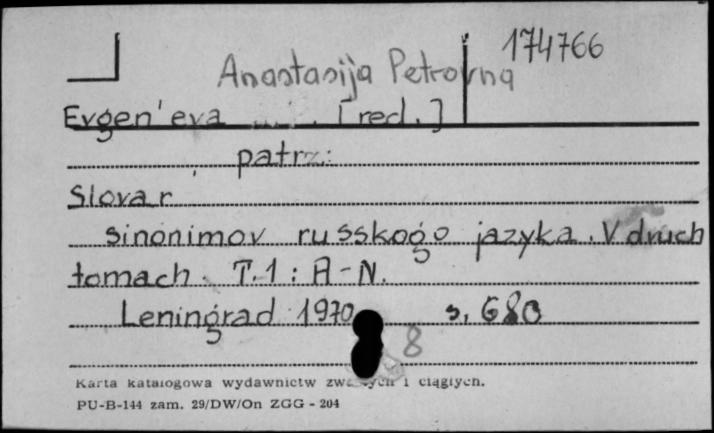 174766
Anastasija Petrovna
Evgen'eva [red.]
patrz:
Slovar
sinonimov russkogo jazyka. V dvuch
tomach. T.1: A-N.
Leningrad 1970 s. 680
8
Karta katalogowa wydawnictw zwartych i ciągłych.
PU-B-144 zam. 29/DW/On ZGG - 204